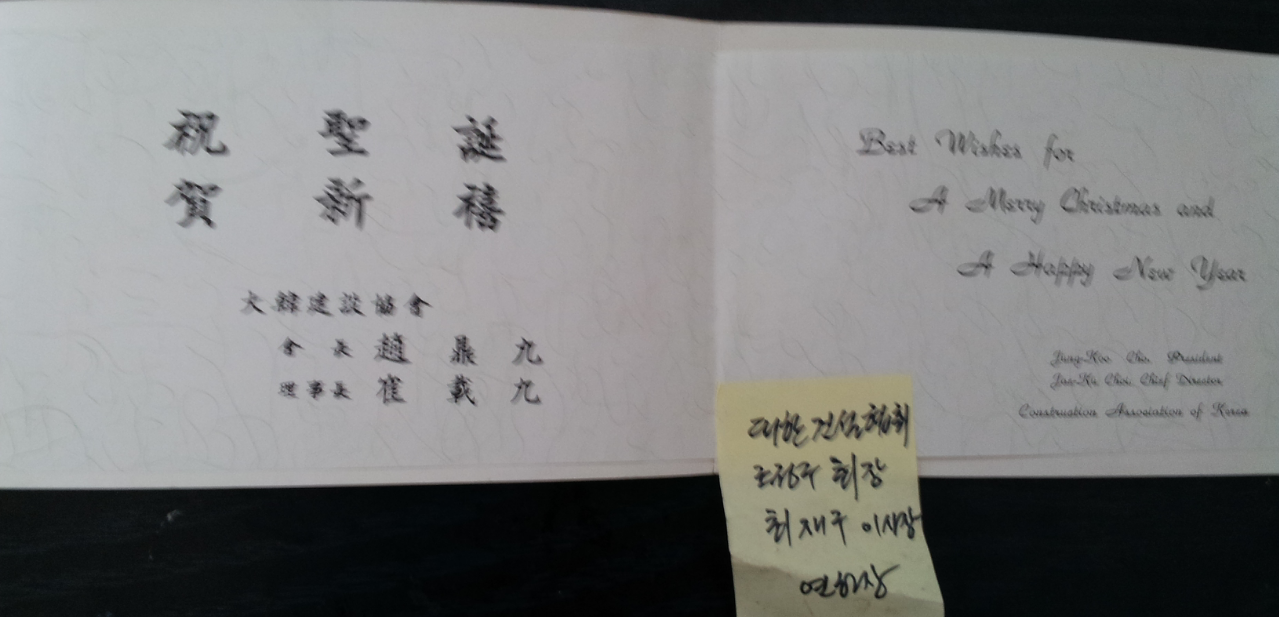 祝 聖 誕
賀 新 禧
大韓建設協會
會 長 趙 鼎 九
理事長 崔 載 九
Best Wishes for
A Merry Christmas and
A Happy New Year
Jung-Koo Cho, President
Jae-Ku Choi, Chief Director
Construction Association of Korea
대한건설협회
조정구 회장
최재구 이사장
연하장